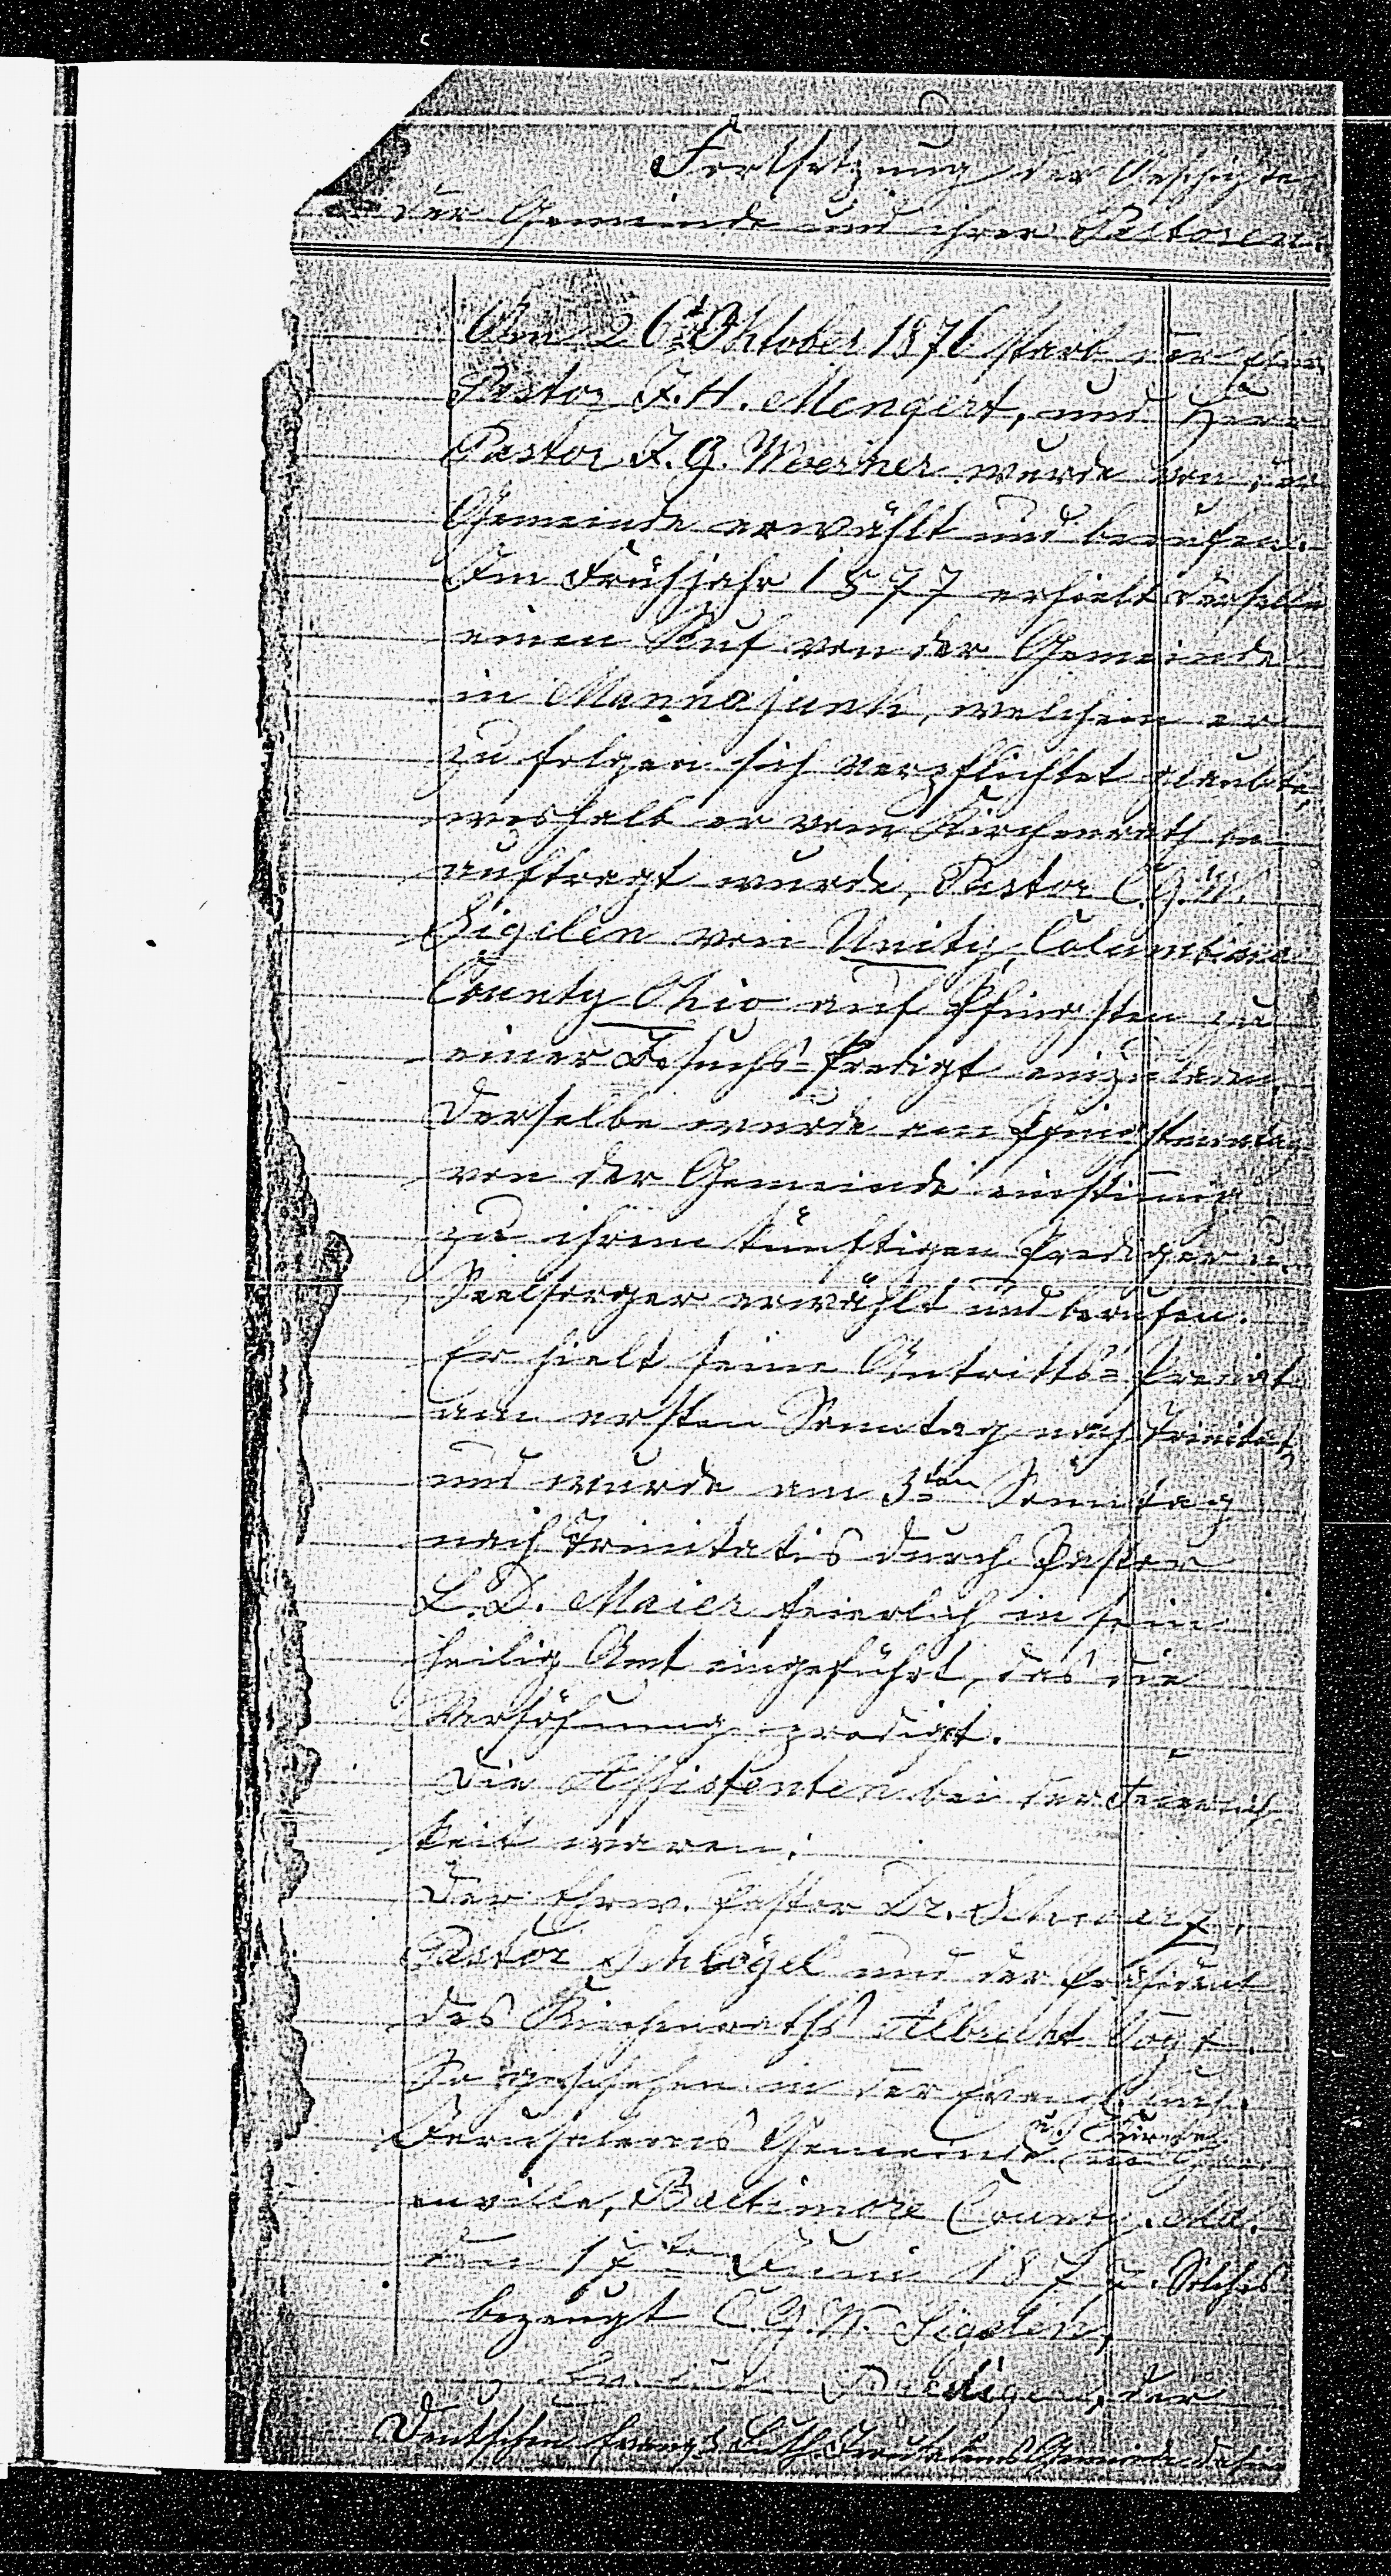 Fortsetzung der Geschichte
der Gemeinde und ihrer Pastoren.
Am 26t Oktober 1876 starb der
Pastor F. H. Mengert, und Herr
Pastor F. G. Woerner wurde von der
Gemeinde erwählt und berufen.
Im Frühjahr 1877 erhielt derselbe
einen Ruf von der Gemeinde
in Mannajunk, welchem er
zu folgen sich verpflichtet glaubte,
weshalb er vom Kirchenrath be
auftragt wurde, Pastor C. G. W.
Sigelen von Unity, Columbiana
County Ohio auf Pfingsten zu
einer Besuchs-Predigt einzuladen.
Derselbe wurde am Pfingstmontag
von der Gemeinde einstimmig
zu ihrem künftigen Prediger u.
Seelsorger erwählt und berufen.
Er hielt seine Antritts-Predigt
am ersten Sonntag nach Trinitat,
und wurde am 3ten Sonntag
nach Trinitatis durch Pastor
L. D. Maier feierlich in sein
heilig Amt eingeführt, das die
Versöhnung predigt.
Die Assistenten bei der Feierlich
keit waren:
Der Ehrw. Pastor Dr. Schwarz,
Pastor Schlögel und der Präsident
des Kirchenraths Albrecht Vogt
So geschehen in der Evang. Luth.
Jerusalems Gemeinde u. Kirche in
enville, Baltimore County. Md.
den 17ten Juni 1877. Solches
bezeugt C. G. W. Sigelen,
Ev. Luth. Prediger, der
Deutschen Evang. Luth. Jerusalems Gemeinde dahier